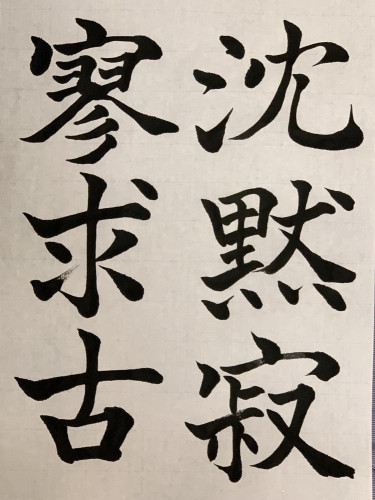 沈黙寂
寥求古